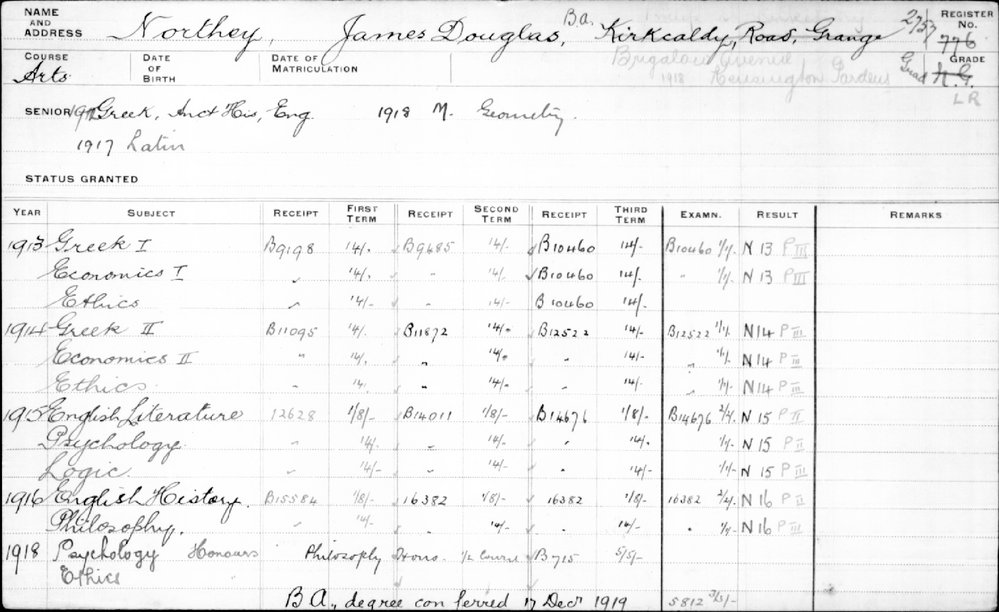 NAME AND ADDRESS Northey, James Douglas, B.A. Kirkcaldy, Road, Grange 2757 REGISTER No. 776
Brigalow Avenue
1918 Kensington Gardens
COURSE Arts DATE OF BIRTH DATE OF MATRICULATION Grad GRADE N.G.
LR
SENIOR Greek, Anct His, Eng. 1918 M. Geometry.
1917 Latin
STATUS GRANTED
YEAR SUBJECT RECEIPT FIRST TERM RECEIPT SECOND TERM RECEIPT THIRD TERM EXAMN. RESULT REMARKS
1913 Greek I B9198 14/. B9685 14/- B10460 14/- B10460 7/. N 13 P III
Economics I " 14/. " 14/. B10460 14/- " 7/. N 13 P III
Ethics " 14/- " 14/- B10460 14/-
1914 Greek II B11095 14/. B11872 14/. B12522 14/- B12522 7/. N 14 P III
Economics II " 14/. " 14/. " 14/- " 7/. N 14 P III
Ethics. " 14/. " 14/- " 14/- " 7/- N 14 P II
1915 English Literature 12628 1/8/- B14011 1/8/- B14676 1/8/- B14676 N 15 P II
Psychology " 14/. " 14/- " 14/. 7/- N 15 P II
Logic. " 14/- " 14/- " 14/- 7/- N 15 P III
1916 English History. B15584 1/8/- 16382 1/8/- 16382 1/8/- 16382 N 16 P II
Philosophy. " 14/- 14/- " 14/- " 7/- N 16 P III
1918 Psychology Honours Philosophy Hons. 1/2 Course B715 5/5/-
Ethics
B.A., degree conferred 17 Decr 1919 5812 3/3/-